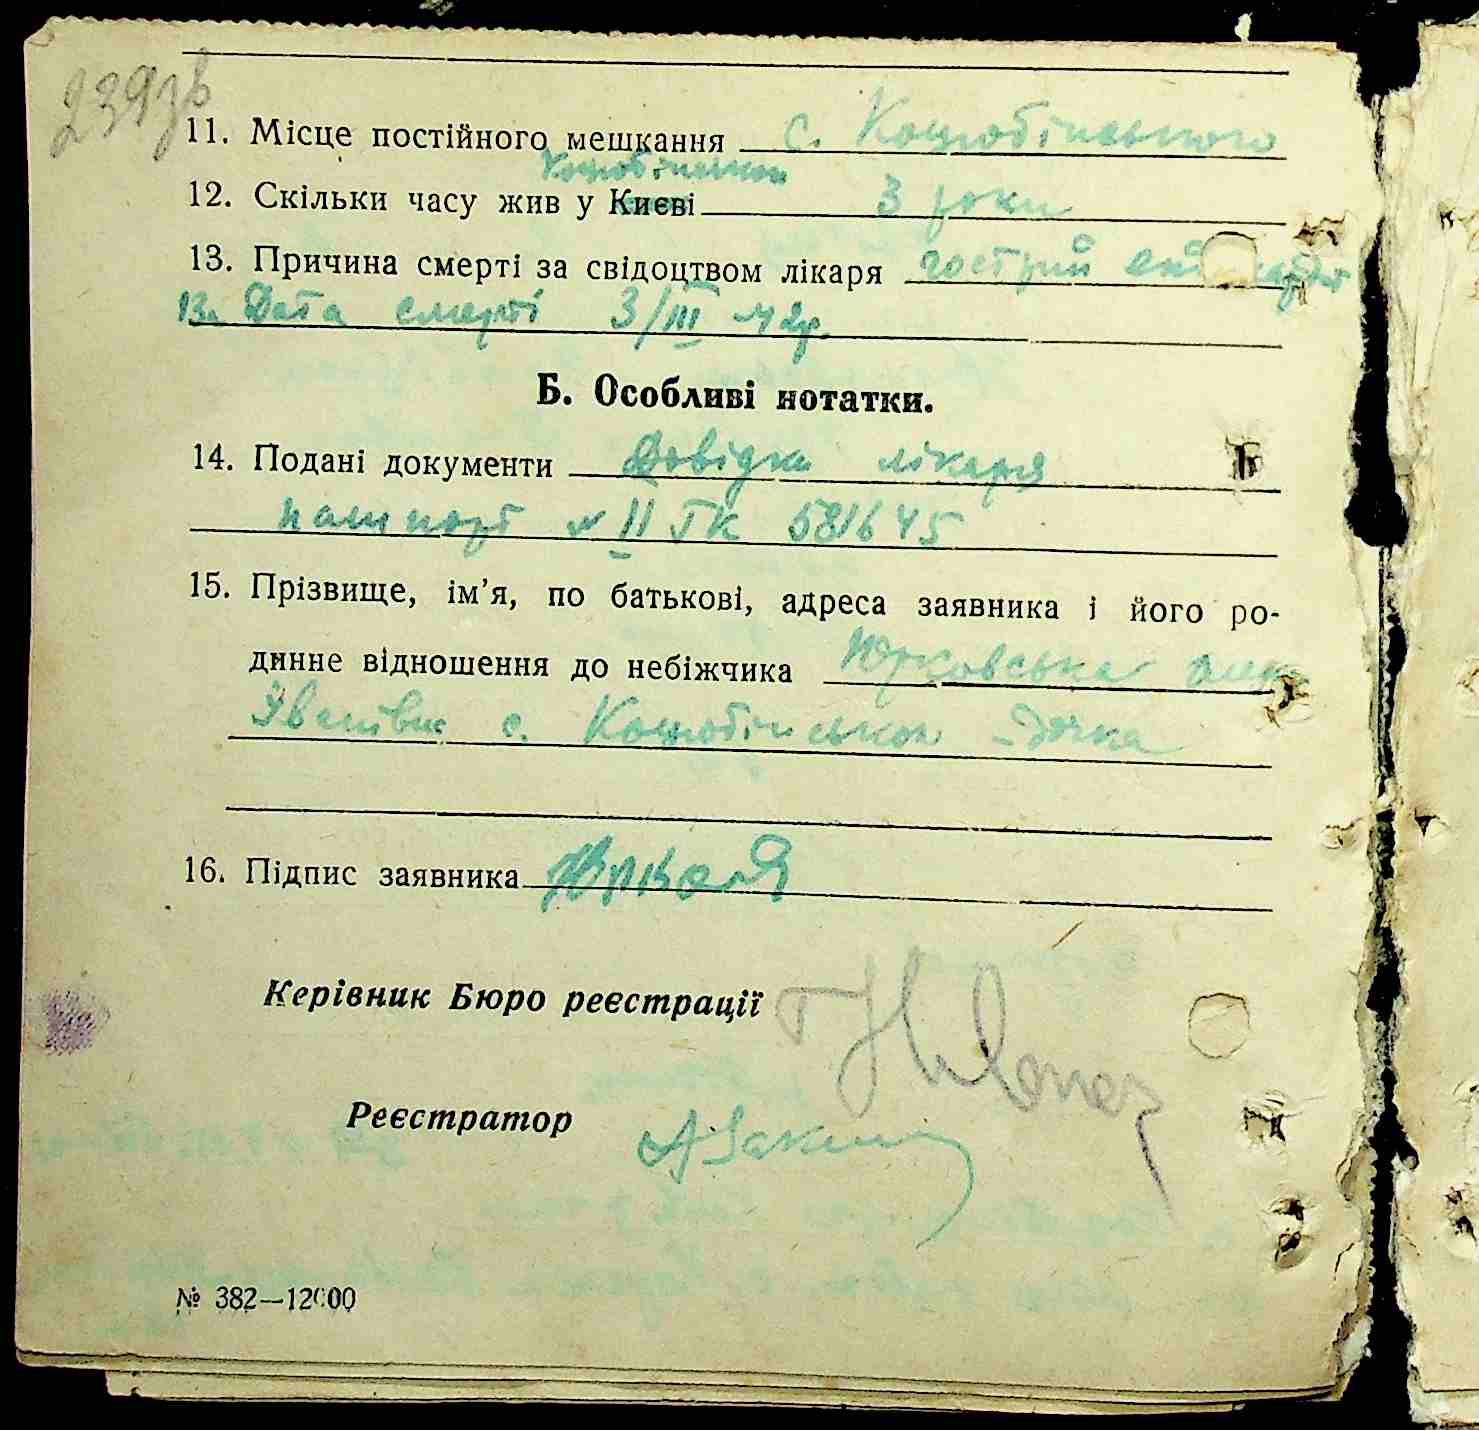 239зв
11. Місце постійного мешкання с. Коцюбінського
Коцюбінском
12. Скільки часу жив у Києві 3 роки
13. Причина смерті за свідоцтвом лікаря гострий
13а Дата смерті 3/III 42р.
Б. Особливі нотатки.
14. Подані документи Довідка лікаря
пашпорт № II ГК 581645
15. Прізвище, ім’я, по батькові, адреса заявника і його ро-
динне відношення до небіжчика Юрковська
Іванівна с. Коцюбінском - дочка
16. Підпис заявника
Керівник Бюро реєстрації
Реєстратор
№ 382—12000